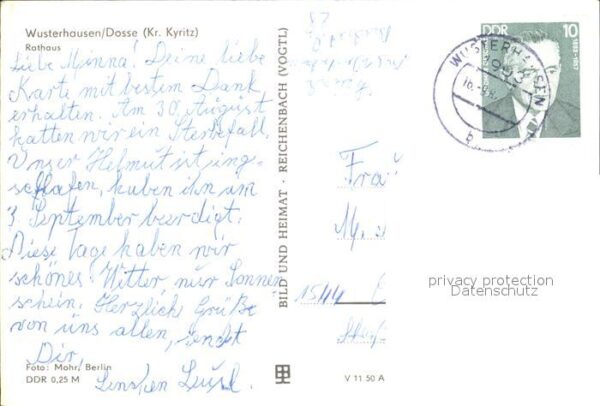 Wusterhausen/Dosse (Kr. Kyritz)
Rathaus
Liebe Minna! Deine liebe
Karte mit bestem Dank
erhalten. Am 30. August
hatten wir ein Sterbefall,
Unser Helmut ist ing-
schlafen, haben ihn am
3. September beerdigt.
Diese Tage haben wir
schönes Witter, nur Sonnen
schein. Herzlich Grüße
von uns allen, sendet
Dir,
Foto: Mohr, Berlin
DDR 0,25 M
BILD UND HEIMAT · REICHENBACH (VOGTL)
V 11 50 A
DDR
10
WUSTERHAUSEN
1903
b
Frau
M.
1514
privacy protection
Datenschutz